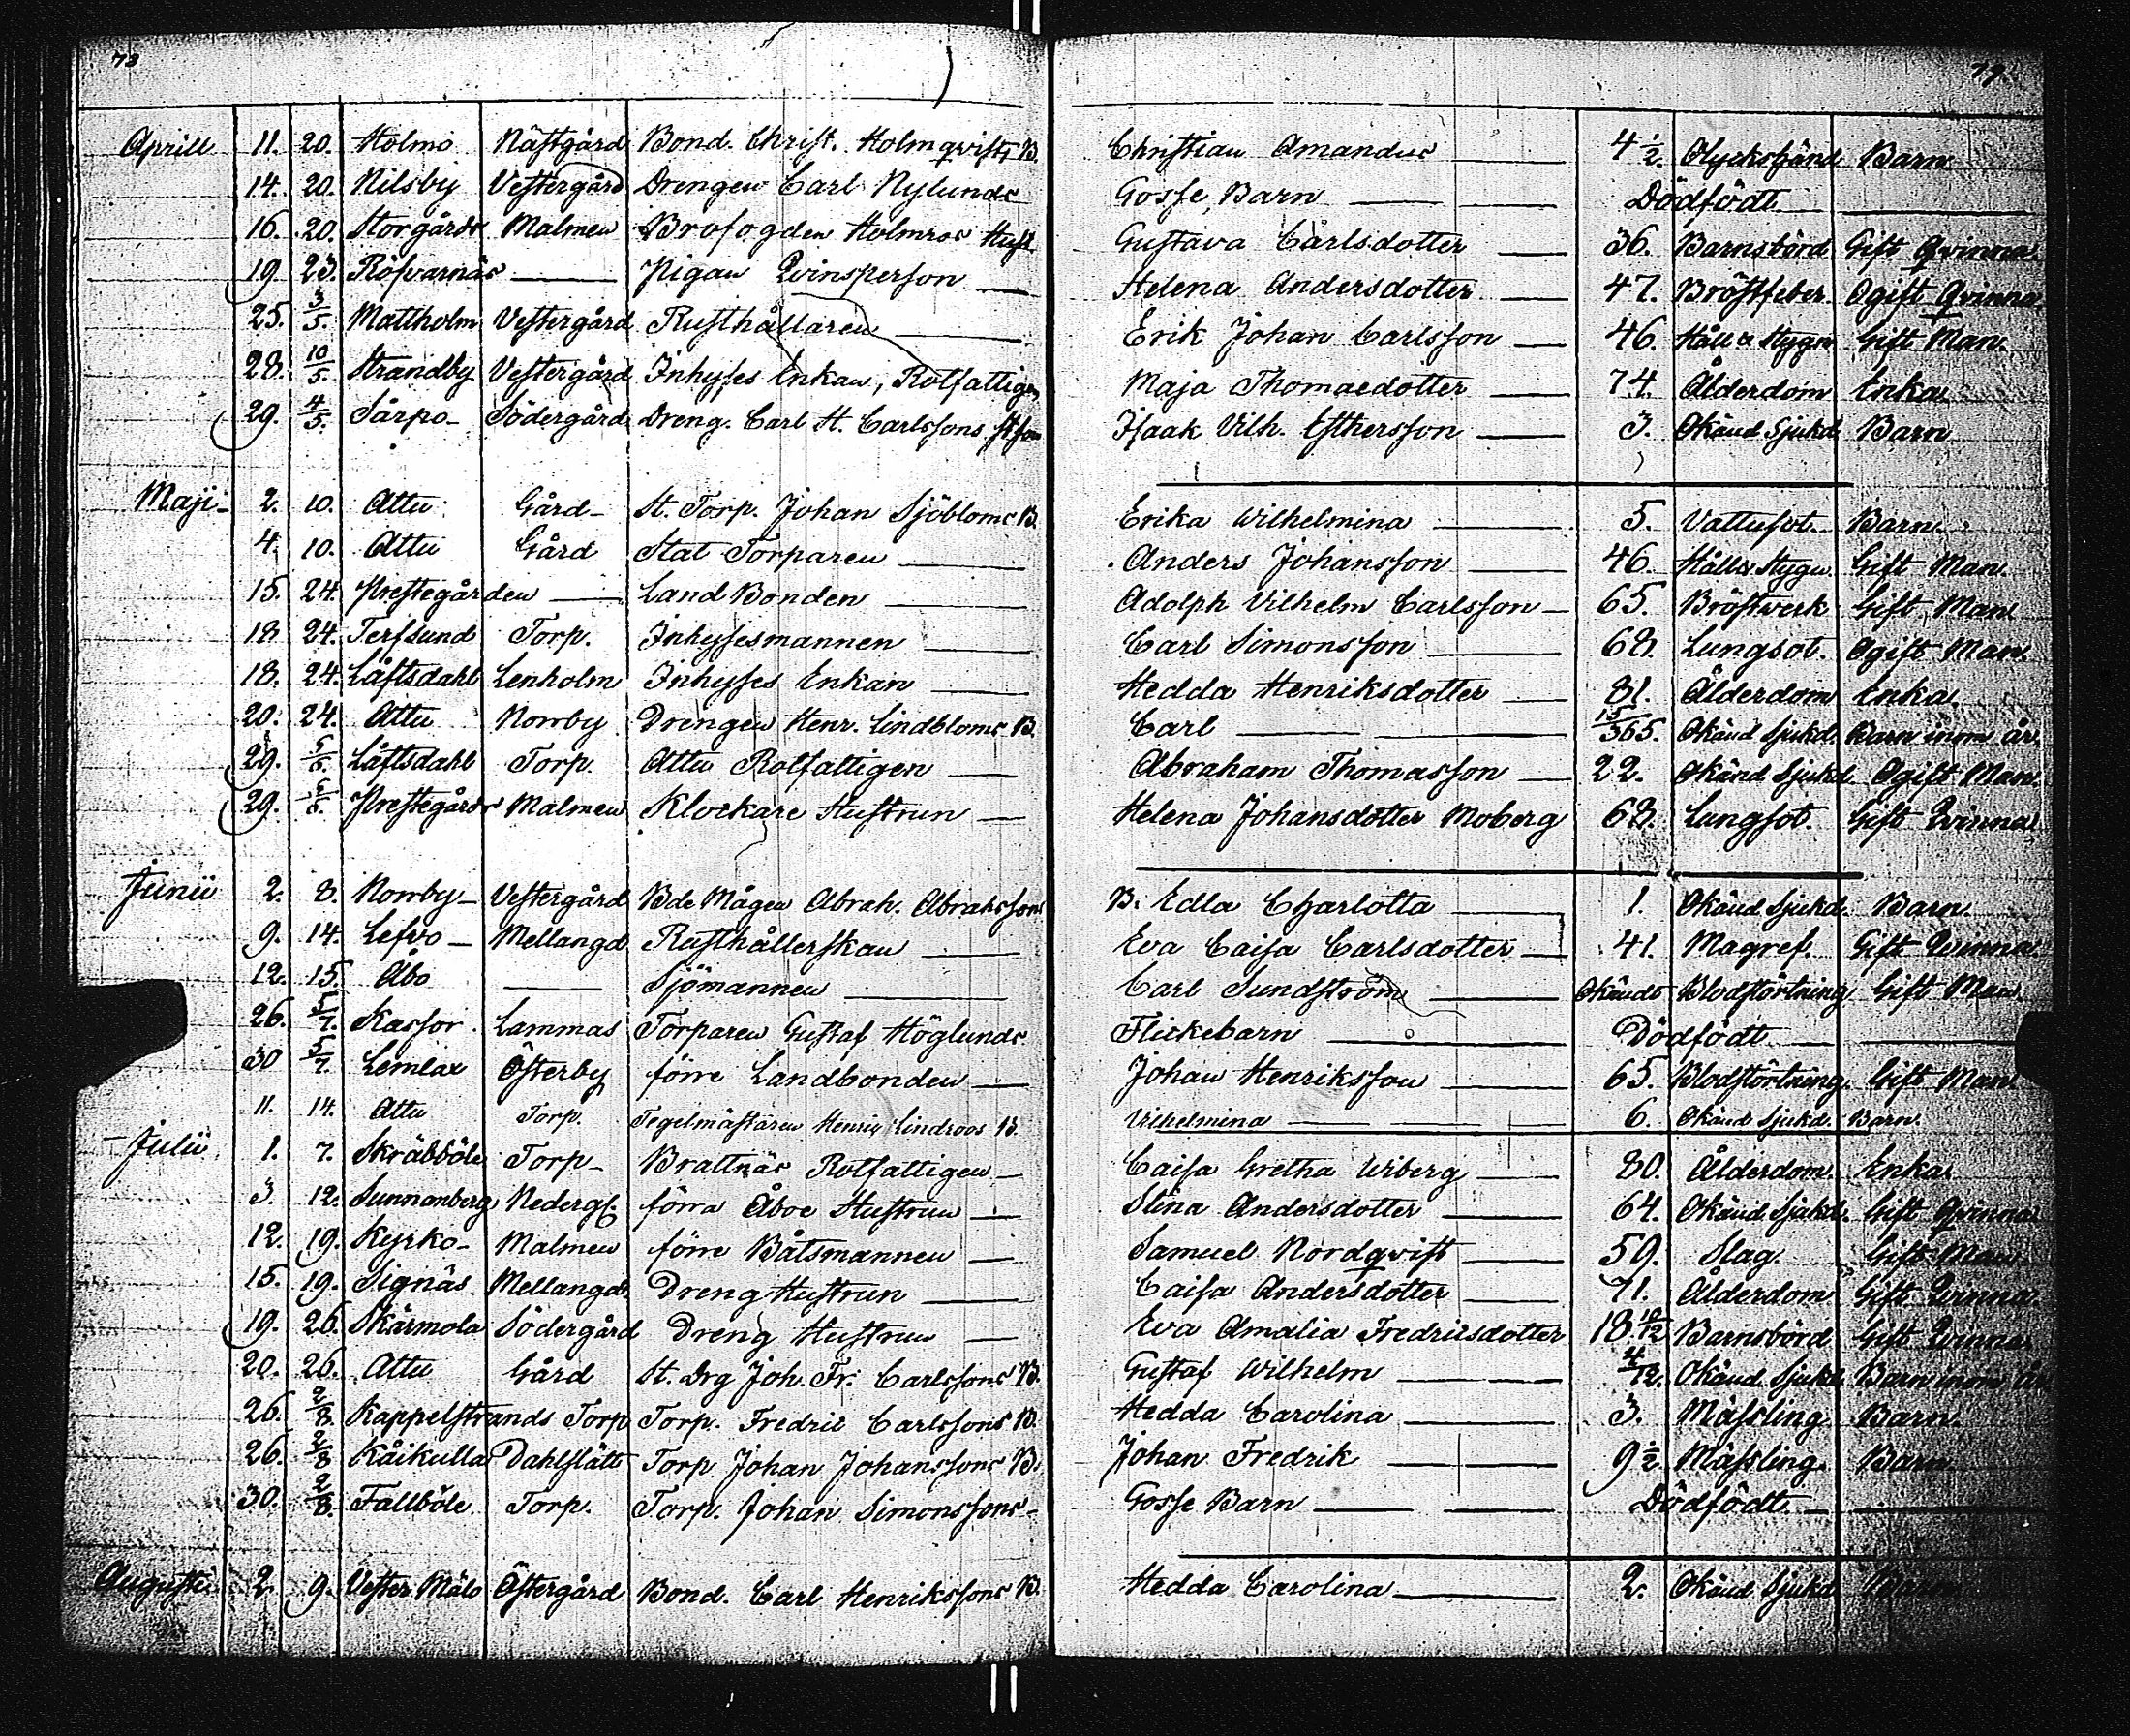 78 79.
Aprill 11. 20. Holmo Nästgård Bond. Christ. Holmqvists B. Christian Amandus 4 1/2. Olyckshänd. Barn
14. 20. Nilsby Vestergård Drengen Carl Nylunds Gosse Barn Dödfödt
16. 20. Storgårds Malmen Brofogden Holmros Hust. Gustava Carlsdotter 36. Barnsbörd Gift Qvinna
19. 23. Röfvarnäs Pigan Qvinsperson Helena Andersdotter 47. Bröstfeber. Ogift Qvinna
25. 3/5. Mattholm Vestergård Rusthållaren Erik Johan Carlsson 46. Håll & Stygn Gift Man.
28. 10/5. Strandby Vestergård Inhyses Enkan, Rotfattigen Maja Thomaedotter 74. Ålderdom Enka
29. 4/5. Särpo Södergård Dreng. Carl H. Carlssons Isaak Vilh. Esthersson 3. Okänd Sjukd. Barn
Maji 2. 10. Attu Gård St. Torp. Johan Sjöbloms B. Erika Wilhelmina 5. Vattusot. Barn.
4. 10. Attu Gård Stat Torparen Anders Johansson 46. Håll & Stygn. Gift Man.
15. 24. Prestegården Land Bonden Adolph Vilhelm Carlsson 65. Bröstverk Gift Man
18 24. Terfsund Torp. Inhysesmannen Carl Simonsson 68. Lungsot. Ogift Man.
18. 24. Låftsdahl Lenholm Inhyses Enkan Hedda Henriksdotter 81. Ålderdom Enka.
20. 24. Attu Norrby Drengen Henr. Lindbloms B. Carl 15/365. Okänd Sjukd. Barn inom år.
29. 5/6. Låftsdahl Torp. Attu Rotfattigen Abraham Thomasson 22. Okänd Sjukd. Ogift Man.
29. Prestegårds Malmen Klockare Hustrun Helena Johansdotter Moberg 68. Lungsot. Gift Qvinna
Junii 2. 8. Norrby Vestergård Bde Mågen Abrah. Abrahssons B. Edla Charlotta 1. Okänd Sjukd. Barn.
9. 14. Lefvo Mellangd Rusthållerskan Eva Caisa Carlsdotter 41. Magref. Gift Qvinna.
12. 15. Åbo Sjömannen Carl Sundström Okändt Blodstörtning Gift Man.
26. 5/7. Kassor Lammas Torparen Gustaf Höglunds Flickebarn Dödfödt
30 5/7. Lemlax Österby förre Landbonden Johan Henriksson 65. Blodstörtning. Gift Man
11. 14. Attu Torp. Tegelmästaren Henric Lindroos B. Vilhelmina 6. Okänd Sjukd. Barn.
Julii 1. 7. Skräbböle Torp Brattnäs Rotfattigen Caisa Gretha Wiberg 80. Ålderdom. Enka.
3. 12. Sunnanberg Nederg. förra Åboe Hustrun Stina Andersdotter 64. Okänd Sjukd. Gift Qvinna
12. 19. Kyrko Malmen förre Båtsmannen Samuel Nordqvist 59. Slag. Gift Man
15. 19. Signäs Mellangd. Dreng Hustrun Caisa Andersdotter 71. Ålderdom Gift Qvinna.
19. 26. Skärmola Södergård Dreng Hustrun Eva Amalia Fredricsdotter 18 10/12 Barnsbörd Gift Qvinna
20. 26. Attu Gård St. Drg Joh. Fr. Carlssons B. Gustaf Wilhelm 4/12. Okänd Sjukd. Barn inom år
26. 2/8 Kappelstrands Torp Torp. Fredric Carlssons B. Hedda Carolina 3. Mässling. Barn.
26. 2/8 Kåikulla Dahlslätt Torp Johan Johanssons B. Johan Fredrik 9 1/2 Mässling. Barn
30. 2/8. Fallböle Torp. Torp. Johan Simonssons Gosse Barn Dödfödt.
Augusti 2. 9. Vester Mälo Östergård Bond. Carl Henrikssons B. Hedda Carolina 2. Okänd Sjukd Barn